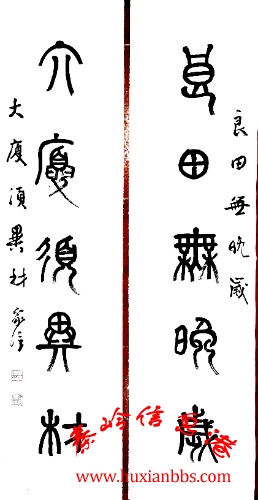 良田無晚歲
良田無晚歲
大廈須異材
大廈須異材
秦岭信息港
www.huxianbbs.com